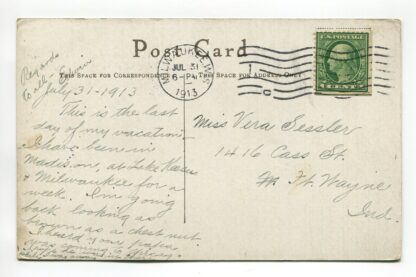 Post Card
THIS SPACE FOR CORRESPONDENCE
THIS SPACE FOR ADDRESS ONLY
MILWAUKEE, WIS.
JUL 31
6-PM
1913
U.S. POSTAGE
1 CENT 1
Regards
July 31-1913
This is the last
day of my vacation
I have been in
Madison, at Lake
& Milwaukee for a
week. I'm going
back looking as
brown as a chest nut.
your papa
was coming to
Miss Vera Sessler
1416 Cass St.
Ft. Wayne
Ind.